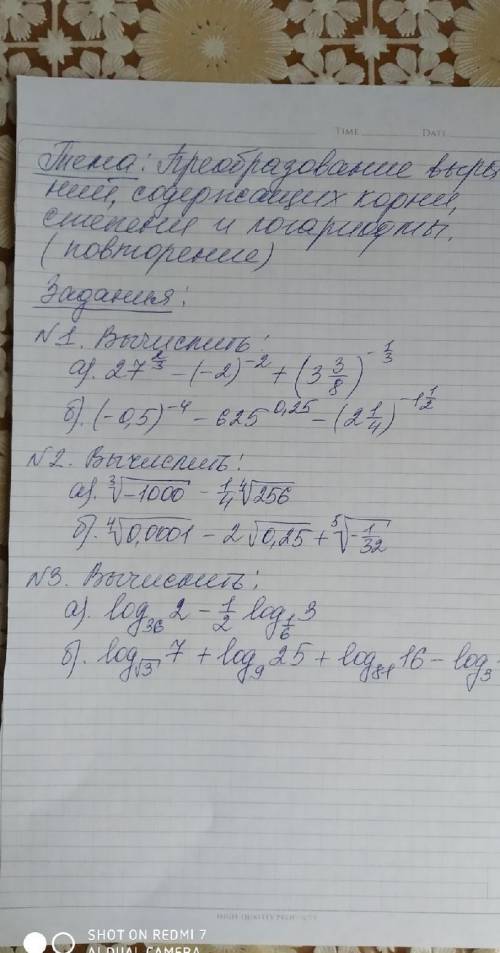 TIME DATE
Тема: Преобразование выра
ний, содержащих корни,
степени и логарифмы.
(повторение)
Задания:
№1. Вычислить:
а). 27^(2/3) − (−2)^(−2) + (3 3/8)^(−1/3)
б). (−0,5)^(−4) − 625^(0,25) − (2 1/4)^(−1 1/2)
№2. Вычислить:
а). ∛(−1000) − 1/4 ∜256
б). ∜0,0001 − 2√0,25 + ⁵√(−1/32)
№3. Вычислить:
а). log₃₆ 2 − 1/2 log_(1/6) 3
б). log_√3 7 + log₉ 25 + log₈₁ 16 − log₃
HIGH QUALITY
SHOT ON REDMI 7
AI DUAL CAMERA